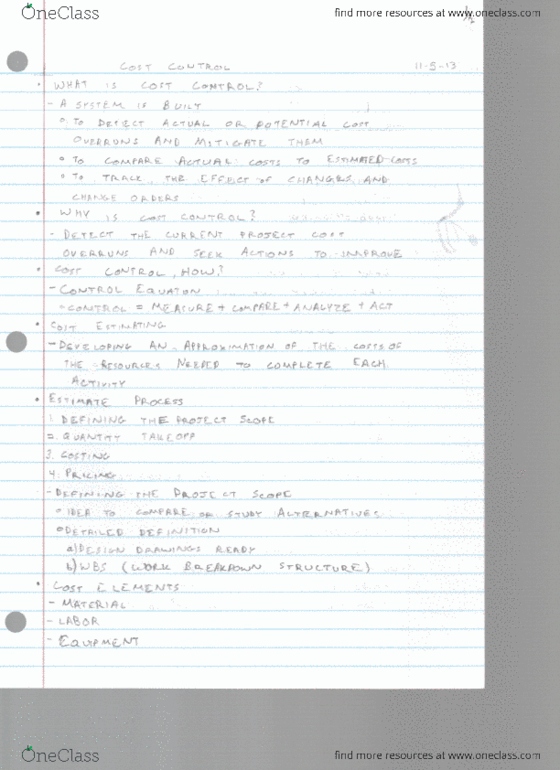 OneClass
find more resources at www.oneclass.com
COST CONTROL 11-5-13
• WHAT IS COST CONTROL?
- A SYSTEM IS BUILT
° TO DETECT ACTUAL OR POTENTIAL COST
OVERRUNS AND MITIGATE THEM
° TO COMPARE ACTUAL COSTS TO ESTIMATED COSTS
° TO TRACK THE EFFECT OF CHANGES AND
CHANGE ORDERS
• WHY IS COST CONTROL?
- DETECT THE CURRENT PROJECT COST
OVERRUNS AND SEEK ACTIONS TO IMPROVE
• COST CONTROL, HOW?
- CONTROL EQUATON
° CONTROL = MEASURE + COMPARE + ANALYZE + ACT
• COST ESTIMATING
- DEVELOPING AN APPROXIMATION OF THE COSTS OF
THE RESOURCES NEEDED TO COMPLETE EACH
ACTIVITY
• ESTIMATE PROCESS
1. DEFINING THE PROJECT SCOPE
2. QUANTITY TAKEOFF
3. COSTING
4. PRICING
- DEFINING THE PROJECT SCOPE
° IDEA TO COMPARE OR STUDY ALTERNATIVES
° DETAILED DEFINITION
a) DESIGN DRAWINGS READY
b) WBS (WORK BREAKDOWN STRUCTURE)
• COST ELEMENTS
- MATERIAL
- LABOR
- EQUIPMENT
OneClass
find more resources at www.oneclass.com